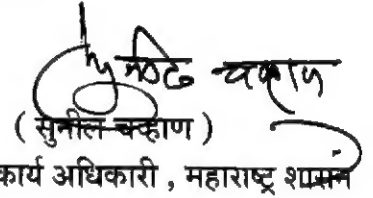 ( सुनील चव्हाण )
कार्य अधिकारी , महाराष्ट्र शासन